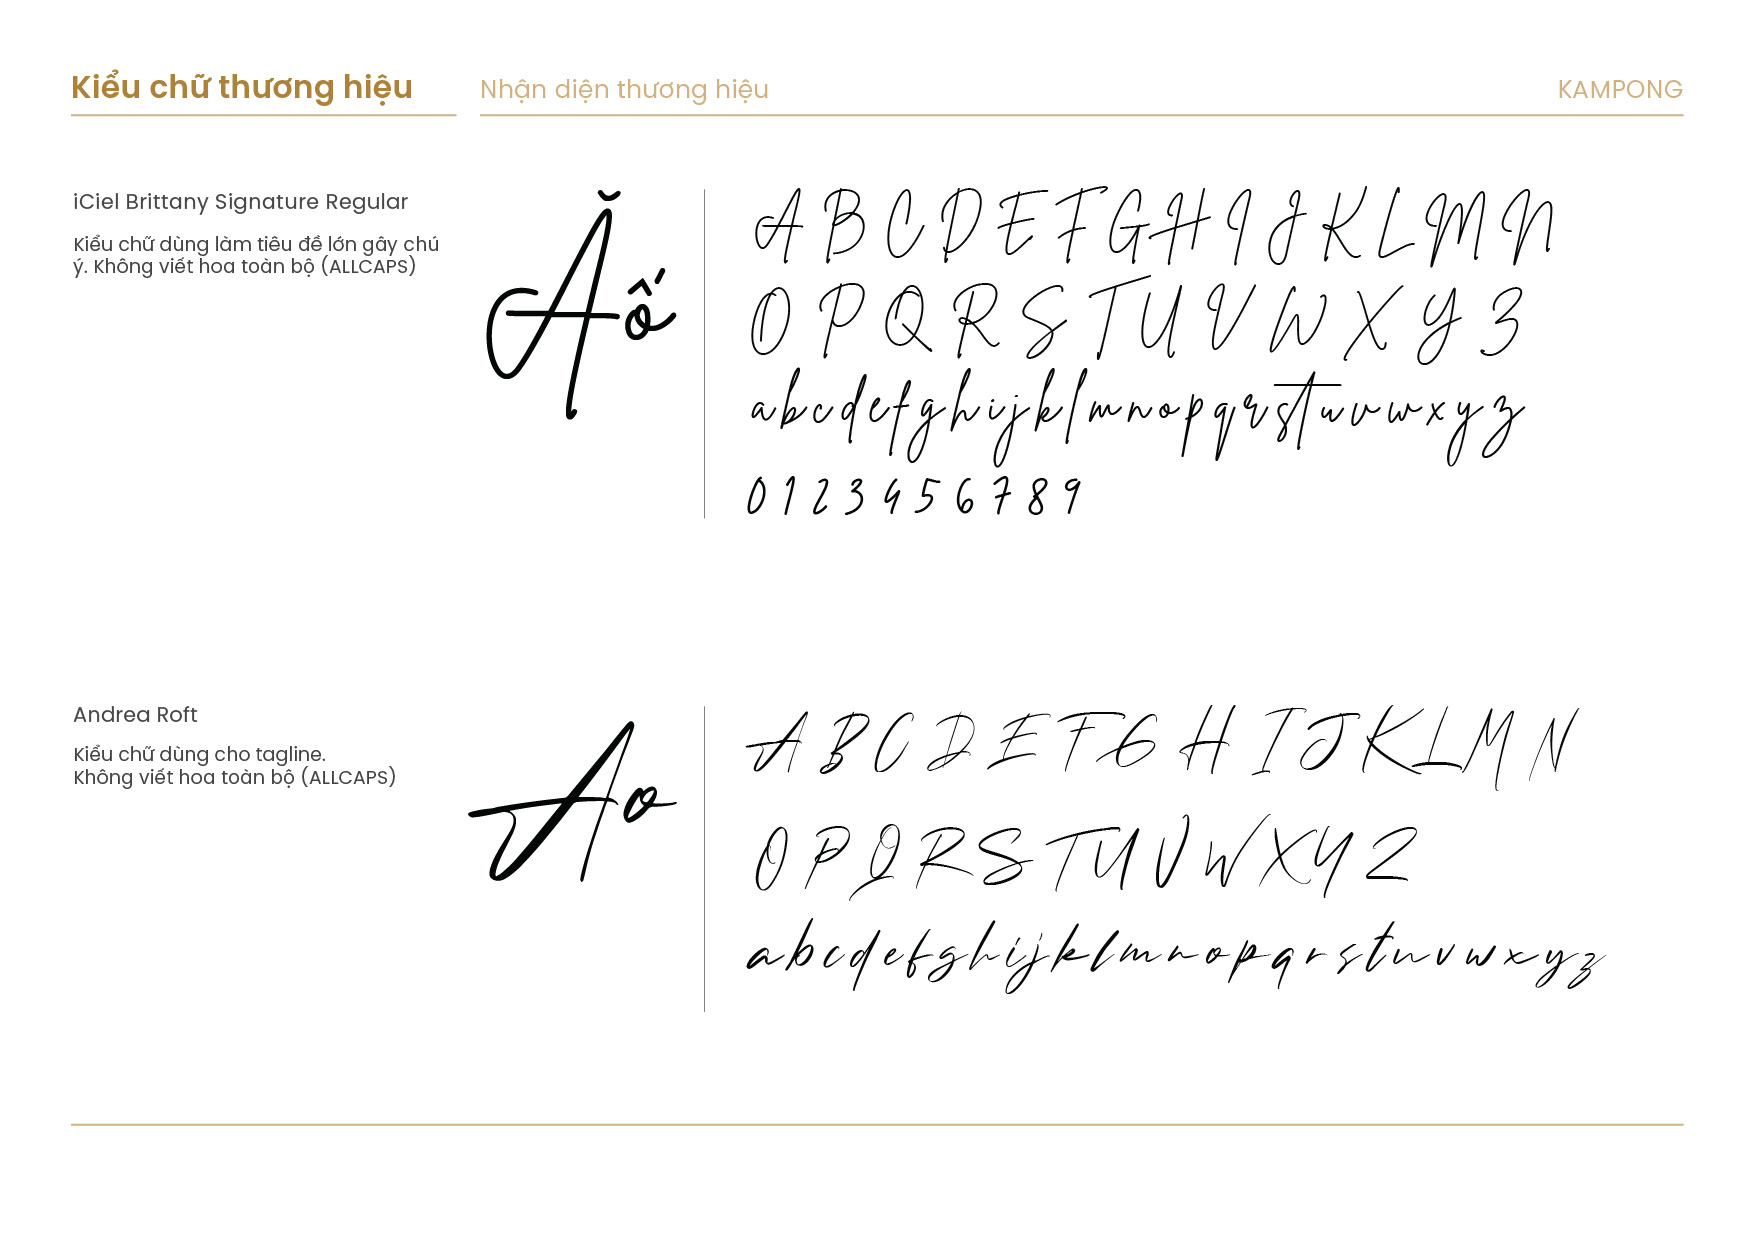 Kiểu chữ thương hiệu
Nhận diện thương hiệu
KAMPONG
iCiel Brittany Signature Regular
Kiểu chữ dùng làm tiêu đề lớn gây chú
ý. Không viết hoa toàn bộ (ALLCAPS)
Ăố
A B C D E F G H I J K L M N
O P Q R S T U V W X Y Z
a b c d e f g h i j k l m n o p q r s t u v w x y z
0 1 2 3 4 5 6 7 8 9
Andrea Roft
Kiểu chữ dùng cho tagline.
Không viết hoa toàn bộ (ALLCAPS)
Ao
A B C D E F G H I J K L M N
O P Q R S T U V W X Y Z
a b c d e f g h i j k l m n o p q r s t u v w x y z